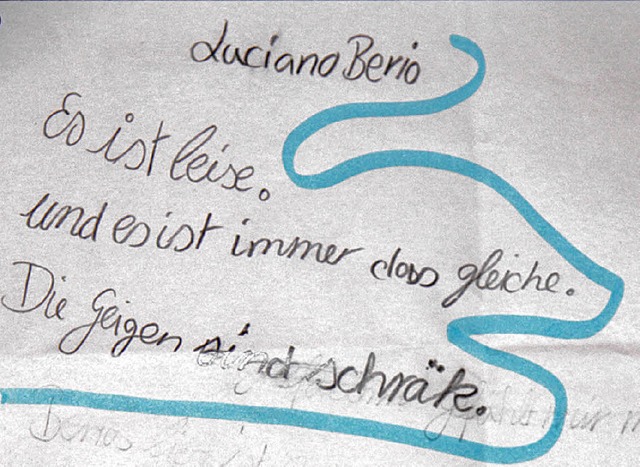 Luciano Berio
Es ist leise.
und es ist immer das gleiche.
Die Geigen sind schräk.
gefählt mir
Berios